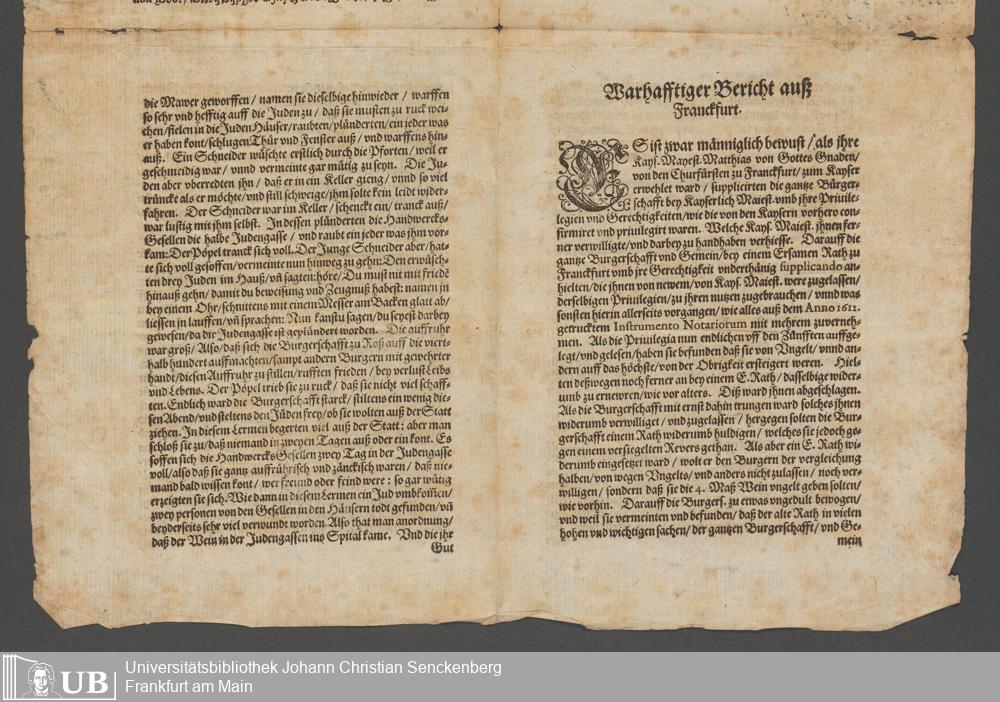 die Mawer geworffen / namen sie dieselbige hinwieder / warffen
so sehr vnd hefftig auff die Juden zu / daß sie musten zu ruck wei-
chen / fielen in die Juden Häuser / raubten / plünderten / ein jeder was
er haben kont / schlugen Thür vnd Fenster auß / vnd warffens hin-
auß. Ein Schneider wüschte erstlich durch die Pforten / weil er
geschmeidig war / vnnd vermeinte gar mütig zu seyn. Die Ju-
den aber vberredten jhn / daß er in ein Keller gieng / vnnd so viel
träncke als er möchte / vnd still schweige / jhm solte kein leidt wider-
fahren. Der Schneider war im Keller / schenckt ein / tranck auß /
war lustig mit jhm selbst. In dessen plünderten die Handwercks-
Gesellen die halbe Judengasse / vnd raubt ein jeder was jhm vor-
kam: Der Pöpel tranck sich voll. Der Junge Schneider aber / hat-
te sich voll gesoffen / vermeinte nun hinweg zu gehn: Den erwüsch-
ten drey Juden im Hauß / vñ sagten: höre / Du must nit mit friedẽ
hinauß gehn / damit du beweisung vnd Zeugnuß habest: namen jn
bey einem Ohr / schnittens mit einem Messer am Backen glatt ab /
liessen jn lauffen / vñ sprachen: Nun kanstu sagen / du seyest darbey
gewesen / da die Judengasse ist geplündert worden. Die auffruhr
war groß / Also / daß sich die Burgerschafft zu Roß auff die viert-
halb hundert auffmachten / sampt andern Burgern mit gewehrter
handt / diesen Auffruhr zu stillen / rufften frieden / bey verlust Leibs
vnd Lebens. Der Pöpel trieb sie zu ruck / daß sie nicht viel schaff-
ten. Endlich ward die Burgerschafft starck / stiltens ein wenig die-
sen Abend / vnd stelltens den Jüden frey / ob sie wolten auß der Statt
ziehen. In diesem Lermen begerten viel auß der Statt: aber man
schloß sie zu / daß niemand in zweyen Tagen auß oder ein kont. Es
soffen sich die Handwercks Gesellen zwey Tag in der Judengasse
voll / also daß sie gantz auffrührisch vnd zänckisch waren / daß nie-
mand bald wissen kont / wer freund oder feind were: so gar wütig
erzeigten sie sich. Wie dann in diesem Lermen ein Jud vmbkom̃en /
zwey personen von den Gesellen in den Häusern todt gefunden / vñ
beyderseits sehr viel verwundt worden. Also that man anordnung /
daß der Wein in der Judengassen ins Spital kame. Vnd die jhr
Gut
Warhafftiger Bericht auß
Franckfurt.
ES ist zwar männiglich bewust / als jhre
Kays. Mayest. Matthias von Gottes Gnaden /
von den Churfürsten zu Franckfurt / zum Kayser
erwehlet ward / supplicirten die gantze Bürger-
schafft bey Kayserlich Maiest. vmb jhre Priuile-
legien vnd Gerechtigkeiten / wie die von den Kaysern vorhero con-
firmiret vnd priuilegirt waren. Welche Kays. Maiest. jhnen fer-
ner verwilligte / vnd darbey zu handhaben verhiesse. Darauff die
gantze Burgerschafft vnd Gemein / bey einem Ersamen Rath zu
Franckfurt vmb jre Gerechtigkeit vnderthänig supplicando an-
hielten / die jhnen von newem / von Kays. Maiest. were zugelassen /
derselbigen Priuilegien / zu jhren nutzen zugebrauchen / vnnd was
sonsten hierin allerseits vorgangen / wie alles auß dem Anno 1612.
getrucktem Instrumento Notariorum mit mehrem zuverneh-
men. Als die Priuilegia nun endlichen vff den Zünfften auffge-
legt / vnd gelesen / haben sie befunden daß sie von Vngelt / vnnd an-
dern auff das höchste / von der Obrigkeit ersteigert weren. Hiel-
ten deßwegen noch ferner an bey einem E. Rath / dasselbige wider-
umb zu ernewren / wie vor alters. Diß ward jhnen abgeschlagen.
Als die Burgerschafft mit ernst dahin trungen ward solches jhnen
widerumb verwilliget / vnd zugelassen / hergegen solten die Bur-
gerschafft einem Rath widerumb huldigen / welches sie jedoch ge-
gen einem versiegelten Revers gethan. Als aber ein E. Rath wi-
derumb eingesetzt ward / wolt er den Burgern der vergleichung
halben / von wegen Vngelts / vnd anders nicht zulassen / noch ver-
willigen / sondern daß sie die 4. Maß Wein vngelt geben solten /
wie vorhin. Darauff die Burgers. zu etwas vngedult bewogen /
vnd weil sie vermeinten vnd befunden / daß der alte Rath in vielen
hohen vnd wichtigen sachen / der gantzen Burgerschafft / vnd Ge-
mein
UB
Universitätsbibliothek Johann Christian Senckenberg
Frankfurt am Main